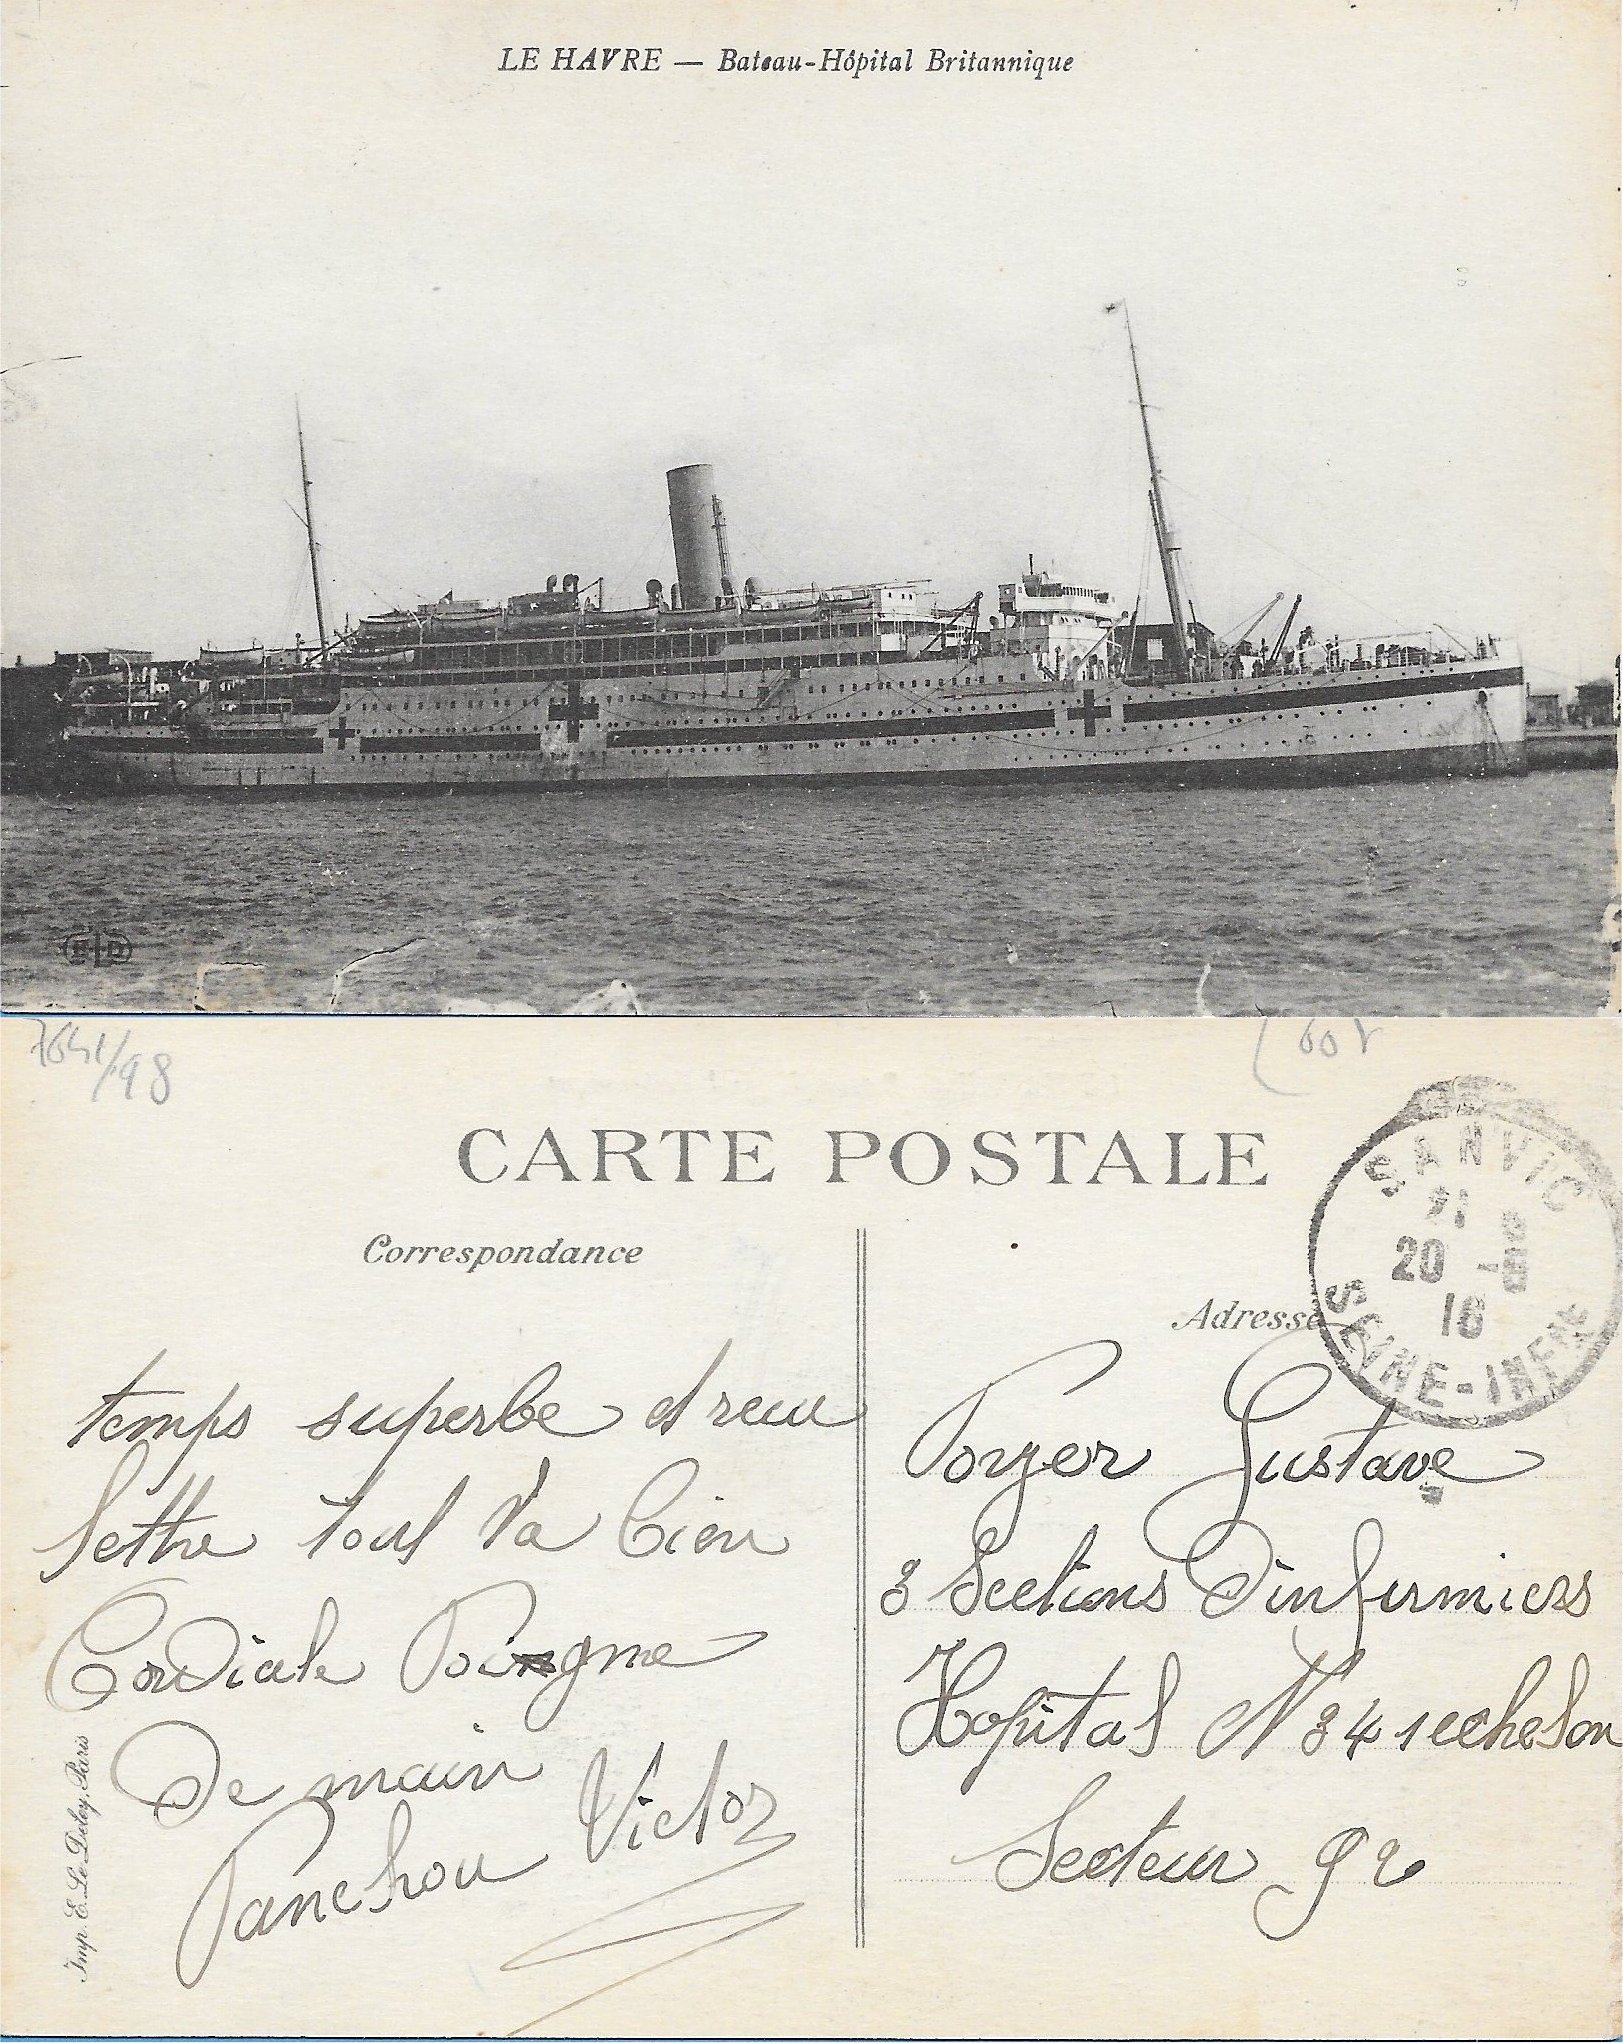 LE HAVRE — Bateau-Hôpital Britannique
ELD
7641/98
CARTE POSTALE
Correspondance
Adresse
SANVIC
20
SEINE-INFRE
temps superbe et recu
lettre tout va bien
Cordiale Poingme
De main
Panchou Victor
Poyer Gustave
3 Sections D'infirmiers
Hopital N 34 1 echelon
Secteur 92
Imp. E. Le Deley, Paris